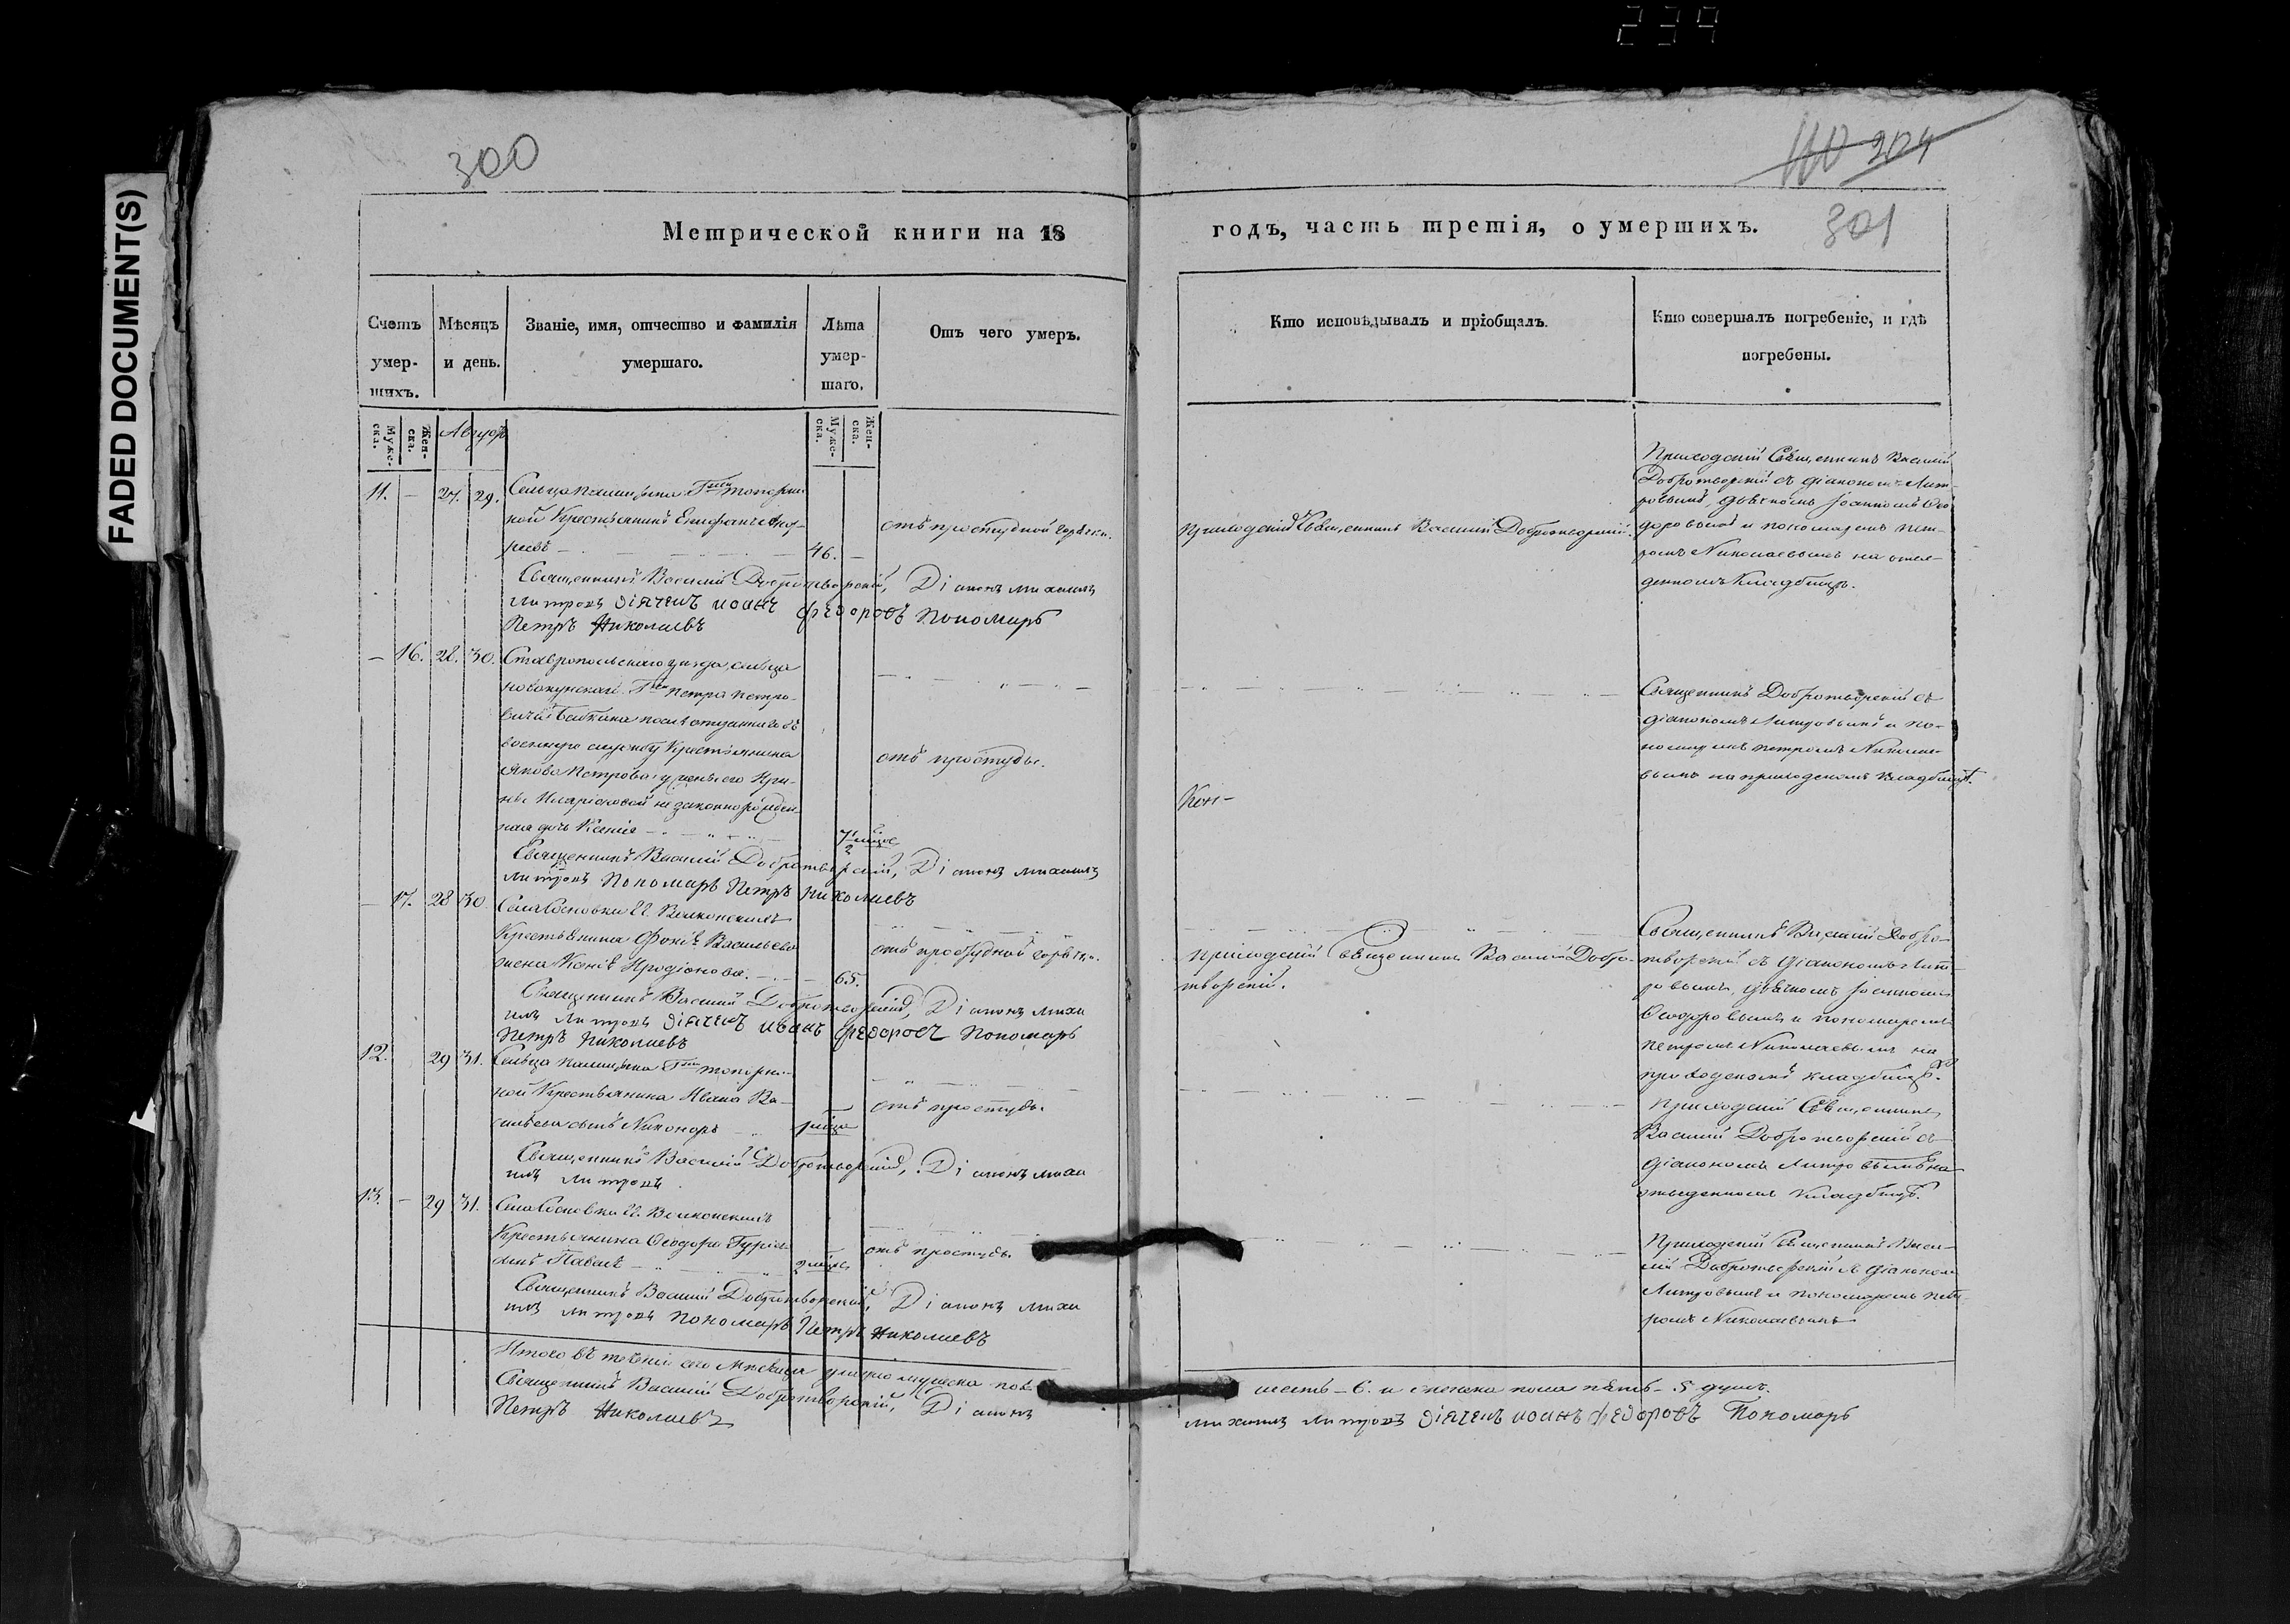 239
FADED DOCUMENT(S)
300
110 204
301
Метрической книги на 18
годъ, часть третія, о умершихъ.
Счетъ умер-шихъ.
Мѣсяцъ и день.
Званіе, имя, отчество и фамилія умершаго.
Лѣта умер-шаго.
Отъ чего умеръ.
Кто исповѣдывалъ и пріобщалъ.
Кто совершалъ погребеніе, и гдѣ погребены.
Муже-ска.
Жен-ска.
Муже-ска.
Жен-ска.
11. — 27. 29. Сельца
ной Крестьянинъ
46. —
отъ простудной горячки.
Приходскій Священникъ Василій Добротворскій.
Приходскій Священникъ Василій
Добротворскій съ діакономъ Лит-
ровымъ, дьячкомъ Іоанномъ Ѳео
доровымъ и пономаремъ Пет-
ромъ Николаевымъ на отве-
денномъ Кладбищѣ.
Священникъ Василій Добротворскій, Діаконъ Михаилъ
Литровъ діячекъ иоанъ федоровъ Пономарь
Петръ Николаевъ
— 16. 28. 30. Ставропольскаго уѣзда, сельца
Петра Петро-
вича
военную службу Крестьянина
Якова Петрова у жены его Ири-
ны незаконнорожден
ная дочь Ксенія
отъ простуды.
Священникъ Добротворскій съ
діакономъ Литровымъ и по-
номаремъ Петромъ Николае-
вымъ на приходскомъ кладбищѣ.
Священникъ Василій Добротворскій, Діаконъ Михаилъ
Литровъ Пономарь Петръ Николаевъ
— 17. 28 30. Села Сосновки
Крестьянина Васильева
жена
65.
отъ простудной горячки.
приходскій Священникъ Василій Добро-
творскій.
Священникъ Василій Добро-
творскій съ діакономъ Лит-
ровымъ, дьячкомъ Іоанномъ
Ѳеодоровымъ и пономаремъ
Петромъ Николаевымъ на
приходскомъ кладбищѣ.
Священникъ Василій Добротворскій, Діаконъ Миха
илъ Литровъ діячекъ иванъ федоровъ Пономарь
Петръ Николаевъ
12. 29 31. Сельца
ной Крестьянина Ивана Ва-
сильева сынъ Никоноръ
отъ простуды
Приходскій Священникъ
Василій Добротворскій съ
діакономъ Литровымъ на
отведенномъ Кладбищѣ.
Священникъ Василій Добротворскій, Діаконъ Миха
илъ Литровъ
13. — 29 31. Села Сосновки
Крестьянина Ѳеодора
сынъ Павелъ
отъ простуды
Приходскій Священникъ Васи-
лій Добротворскій съ діакономъ
Литровымъ и пономаремъ Пет-
ромъ Николаевымъ
Священникъ Василій Добротворскій, Діаконъ Миха
илъ Литровъ Пономарь Петръ Николаевъ
Итого въ теченіи сего Мѣсяца умерло мужеска пола шесть — 6. и женска пола пять — 5 душъ.
Священникъ Василій Добротворскій, Діаконъ Михаилъ Литровъ діячекъ иоанъ федоровъ Пономарь
Петръ Николаевъ